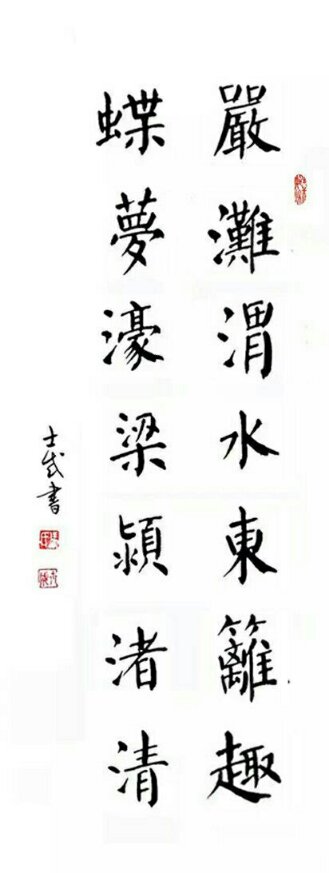 嚴灘渭水東籬趣
蝶夢濠梁潁渚清
士成書